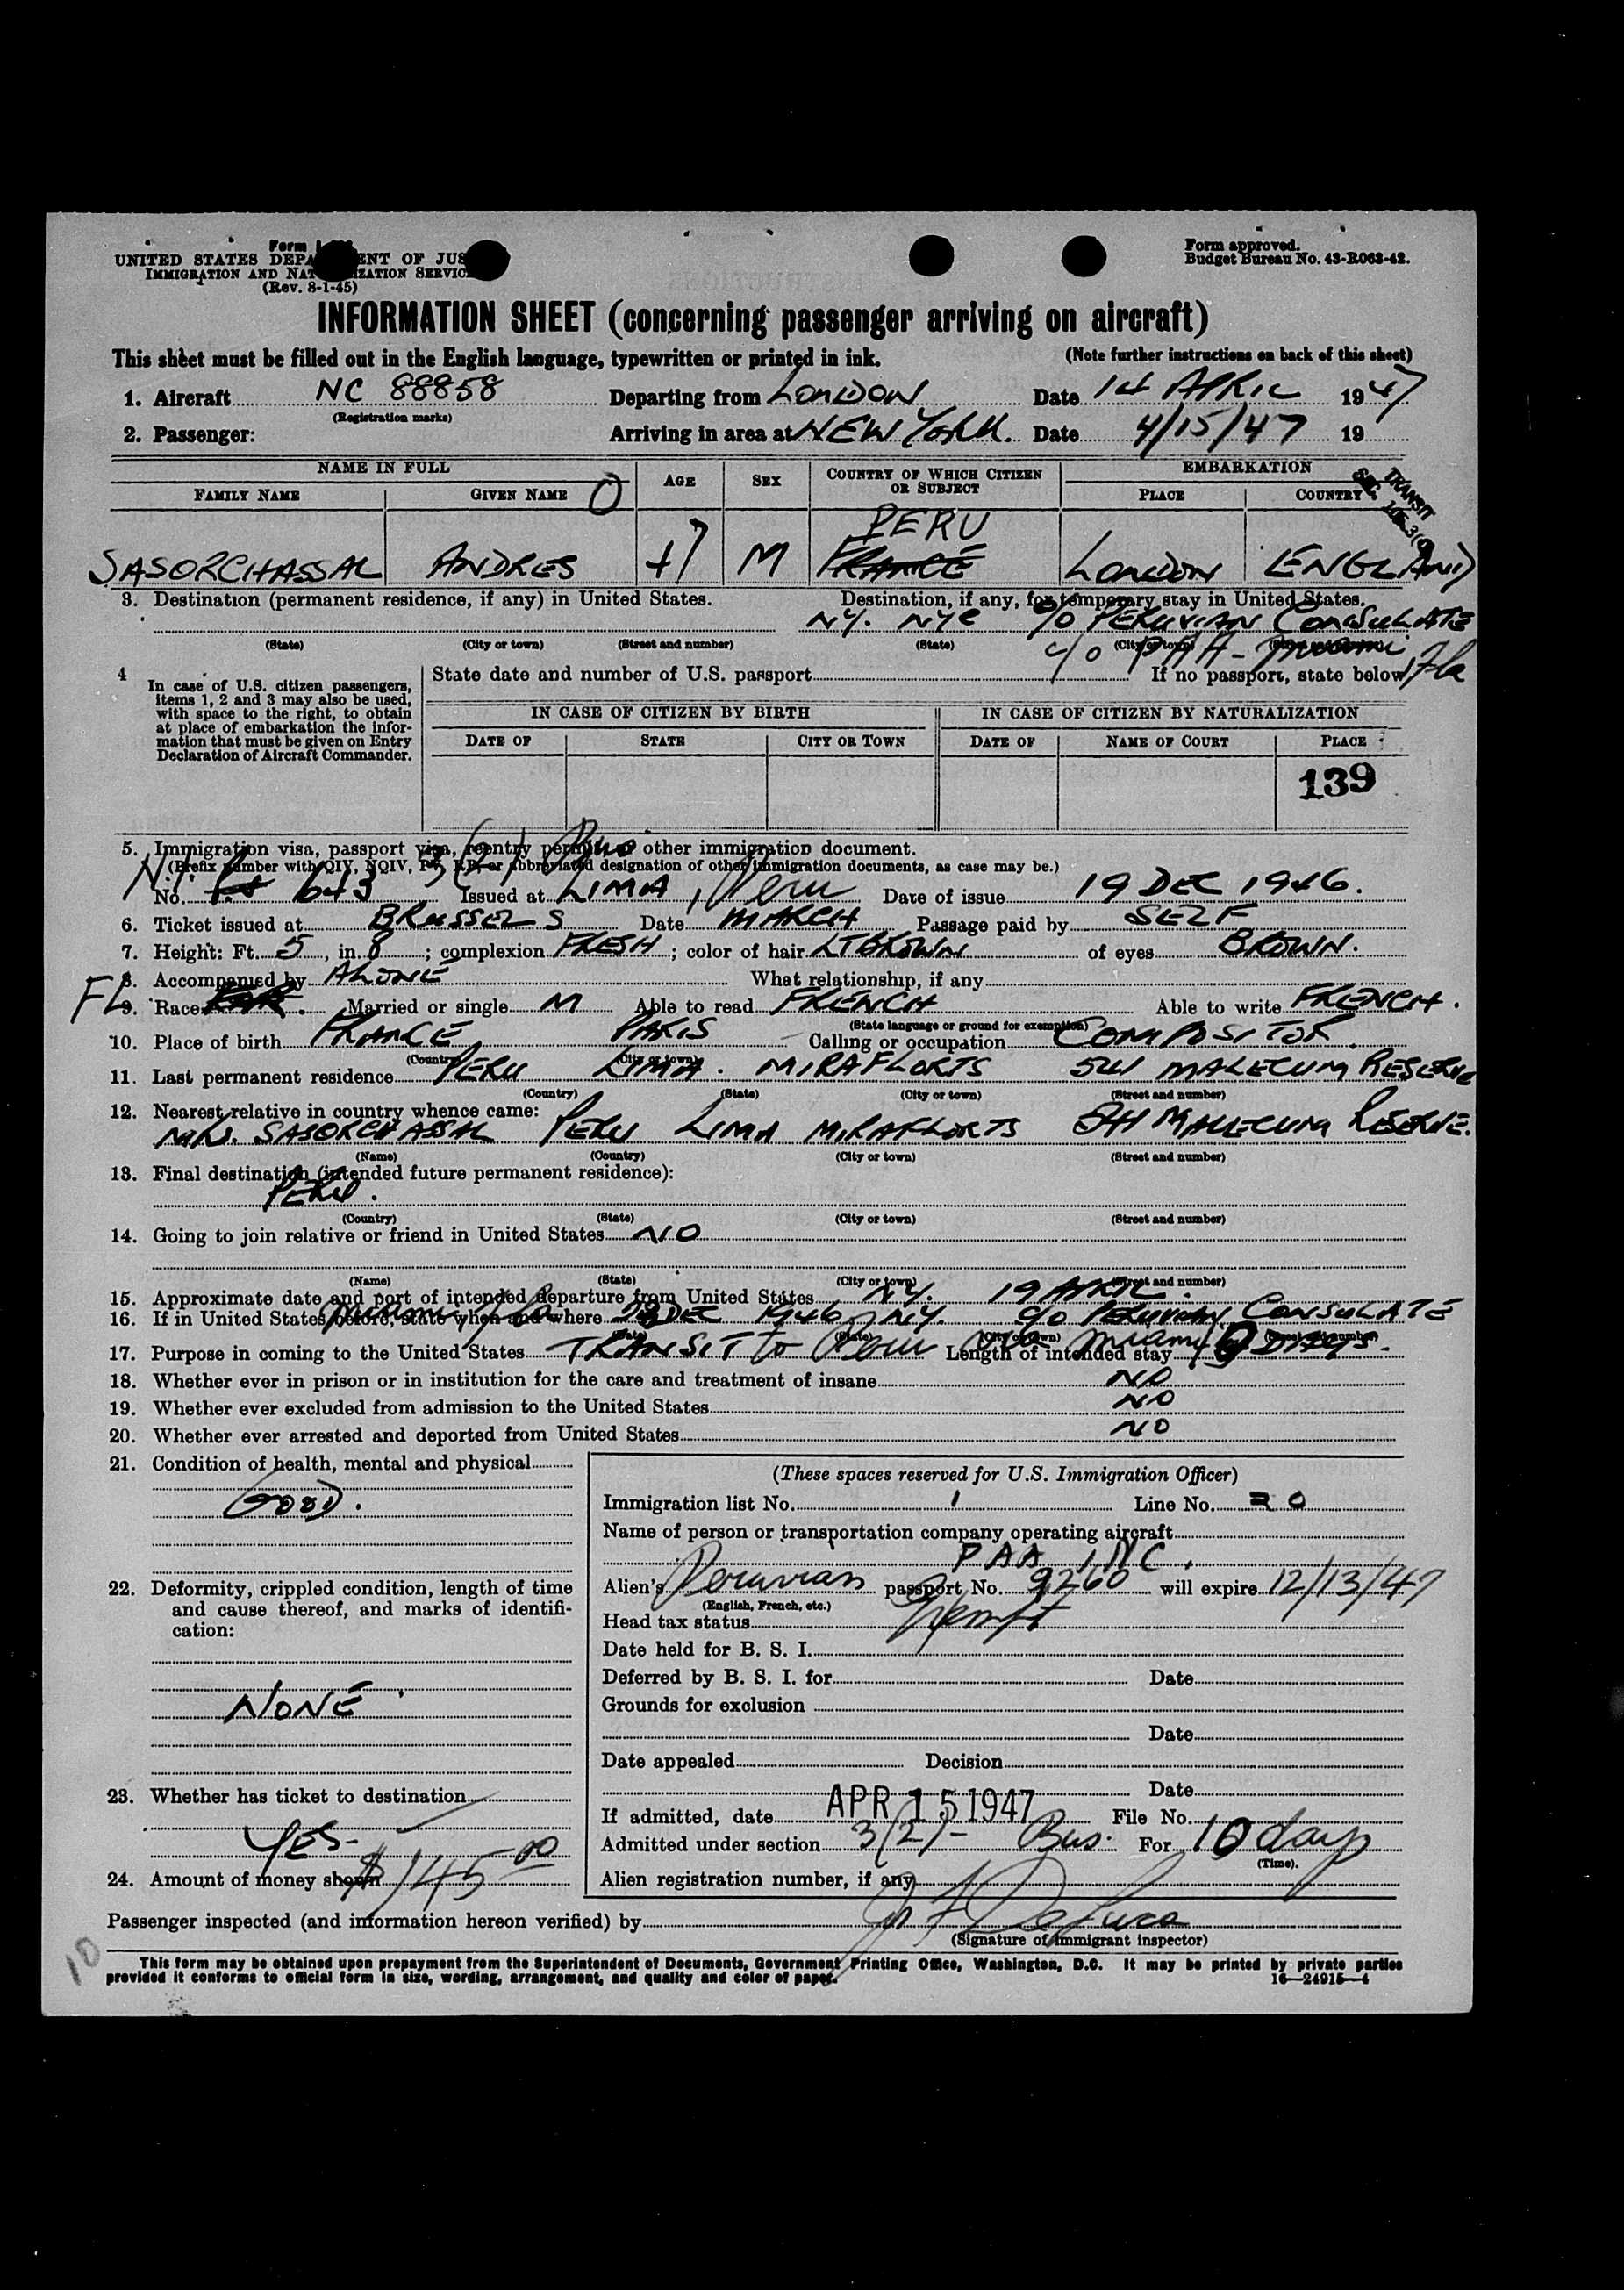 Form
UNITED STATES DEPA ENT OF JUS
IMMIGRATION AND NAT IZATION SERVIC
(Rev. 8-1-45)
Form approved.
Budget Bureau No. 43-R063-42.
INFORMATION SHEET (concerning passenger arriving on aircraft)
This sheet must be filled out in the English language, typewritten or printed in ink. (Note further instructions on back of this sheet)
1. Aircraft NC 88858 Departing from LONDON Date 14 APRIL 1947
(Registration marks)
2. Passenger: Arriving in area at NEW YORK. Date 4/15/47 19
NAME IN FULL AGE SEX COUNTRY OF WHICH CITIZEN OR SUBJECT EMBARKATION
FAMILY NAME GIVEN NAME PLACE COUNTRY
TRANSIT
SEC.
0
PERU
SASORCHASSAL ANDRES 47 M FRANCE LONDON ENGLAND
3. Destination (permanent residence, if any) in United States. Destination, if any, for temporary stay in United States.
N.Y. NYC c/o PERUVIAN CONSULATE
(State) (City or town) (Street and number) (State) (City or town)
c/o PAA - Miami, Fla
4 In case of U.S. citizen passengers, items 1, 2 and 3 may also be used, with space to the right, to obtain at place of embarkation the information that must be given on Entry Declaration of Aircraft Commander.
State date and number of U.S. passport If no passport, state below
IN CASE OF CITIZEN BY BIRTH IN CASE OF CITIZEN BY NATURALIZATION
DATE OF STATE CITY OR TOWN DATE OF NAME OF COURT PLACE
139
5. Immigration visa, passport visa, reentry permit or other immigration document.
(Prefix number with QIV, NQIV, PV, RP, or abbreviated designation of other immigration documents, as case may be.)
3(2)
No. 643 Issued at LIMA, Peru Date of issue 19 DEC 1946.
6. Ticket issued at BRUSSELS Date MARCH Passage paid by SELF
7. Height: Ft. 5, in. 8; complexion FRESH; color of hair LT BROWN of eyes BROWN.
8. Accompanied by ALONE What relationship, if any
9. Race Married or single M Able to read FRENCH Able to write FRENCH.
(State language or ground for exemption)
10. Place of birth FRANCE PARIS Calling or occupation COMPOSITOR.
(Country) (City or town)
11. Last permanent residence PERU LIMA. MIRAFLORTS 541 MALECUM RESERVE
(Country) (State) (City or town) (Street and number)
12. Nearest relative in country whence came:
SASORCHASSAL PERU LIMA MIRAFLORTS 541 MALLECUM RESERVE.
(Name) (Country) (City or town) (Street and number)
13. Final destination (intended future permanent residence):
PERU.
(Country) (State) (City or town) (Street and number)
14. Going to join relative or friend in United States NO
(Name) (State) (City or town) (Street and number)
15. Approximate date and port of intended departure from United States N.Y. 19 APRIL.
Miami, Fla
16. If in United States before, state when and where DEC 1946, N.Y. c/o PERUVIAN CONSULATE
(Date) (State) (City or town) (Street and number)
17. Purpose in coming to the United States TRANSIT to Peru via Miami Length of intended stay 10 DAYS.
18. Whether ever in prison or in institution for the care and treatment of insane NO
19. Whether ever excluded from admission to the United States NO
20. Whether ever arrested and deported from United States NO
21. Condition of health, mental and physical
GOOD.
22. Deformity, crippled condition, length of time and cause thereof, and marks of identification:
NONE.
23. Whether has ticket to destination
YES-
24. Amount of money shown $145 00
(These spaces reserved for U.S. Immigration Officer)
Immigration list No. 1 Line No. 20
Name of person or transportation company operating aircraft
PAA INC.
Alien's Peruvian passport No. 9260 will expire 12/13/47
(English, French, etc.)
Head tax status Exempt
Date held for B. S. I.
Deferred by B. S. I. for Date
Grounds for exclusion
Date
Date appealed Decision
Date
If admitted, date APR 15 1947 File No.
Admitted under section 3(2)- Bus. For 10 days
(Time).
Alien registration number, if any
Passenger inspected (and information hereon verified) by J F DeLuca
(Signature of immigrant inspector)
10
This form may be obtained upon prepayment from the Superintendent of Documents, Government Printing Office, Washington, D.C. It may be printed by private parties
provided it conforms to official form in size, wording, arrangement, and quality and color of paper. 16—24915-4